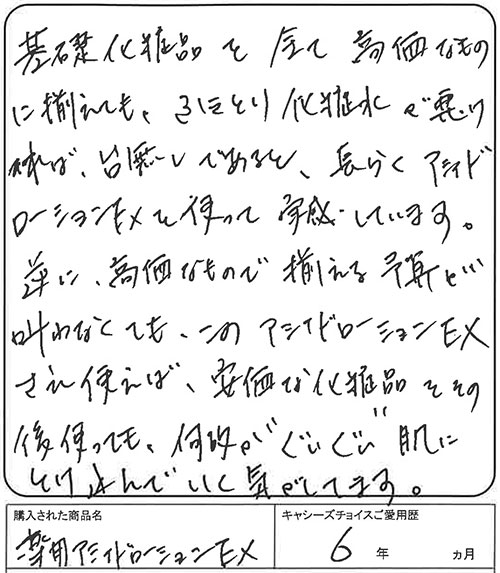 基礎化粧品を全て高価なもの
に揃えても、きほとり化粧水が悪け
れば、台無しであると、長らくアシッド
ローションEXを使って実感しています。
逆に、高価なもので揃える予算が
叶わなくても、このアシッドローションEX
さえ使えば、安価な化粧品をその
後使っても、何故か"ぐいぐい"肌に
とり込んでいく気がしてます。
購入された商品名
キャシーズチョイスご愛用歴
薬用アシッドローションEX
6年 ヵ月